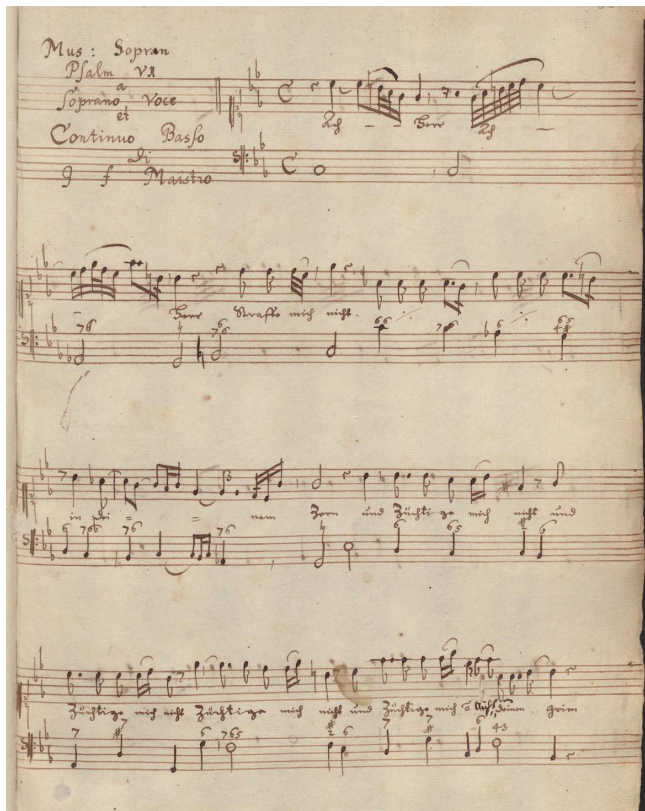 Mus: Sopran
Psalm VI
a
Soprano Voce
et
Continuo Basso
di
G f Maistro
Ach - - Herr Ach -
- Herr Straffe mich nicht.
76 76 66 76 6 65
in dei = = nem Zorn und Züchtige mich nicht und
6 766 76 76 6 65 6
Züchtige mich nicht Züchtige mich nicht und Züchtige mich nicht deinen grim
7 7 6 765 6 7 7 6 43